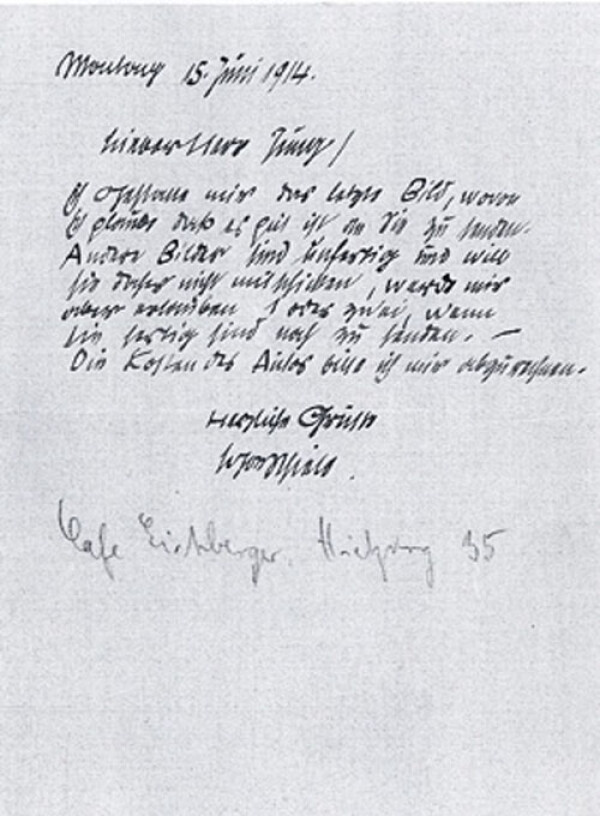 Montag 15. Juni 1914.
Lieber Herr Jung!
Ich gestatte mir das letzte Bild, wovon
ich glaube daß es gut ist an Sie zu senden.
Andere Bilder sind unfertig und will
sie daher nicht mitschicken, werde mir
aber erlauben 1 oder zwei, wenn
sie fertig sind noch zu senden. —
Die Kosten des Autos bitte ich mir abzurechnen.
Herzliche Grüße
Egon Schiele.
Cafe Eichberger. Hietzing 35